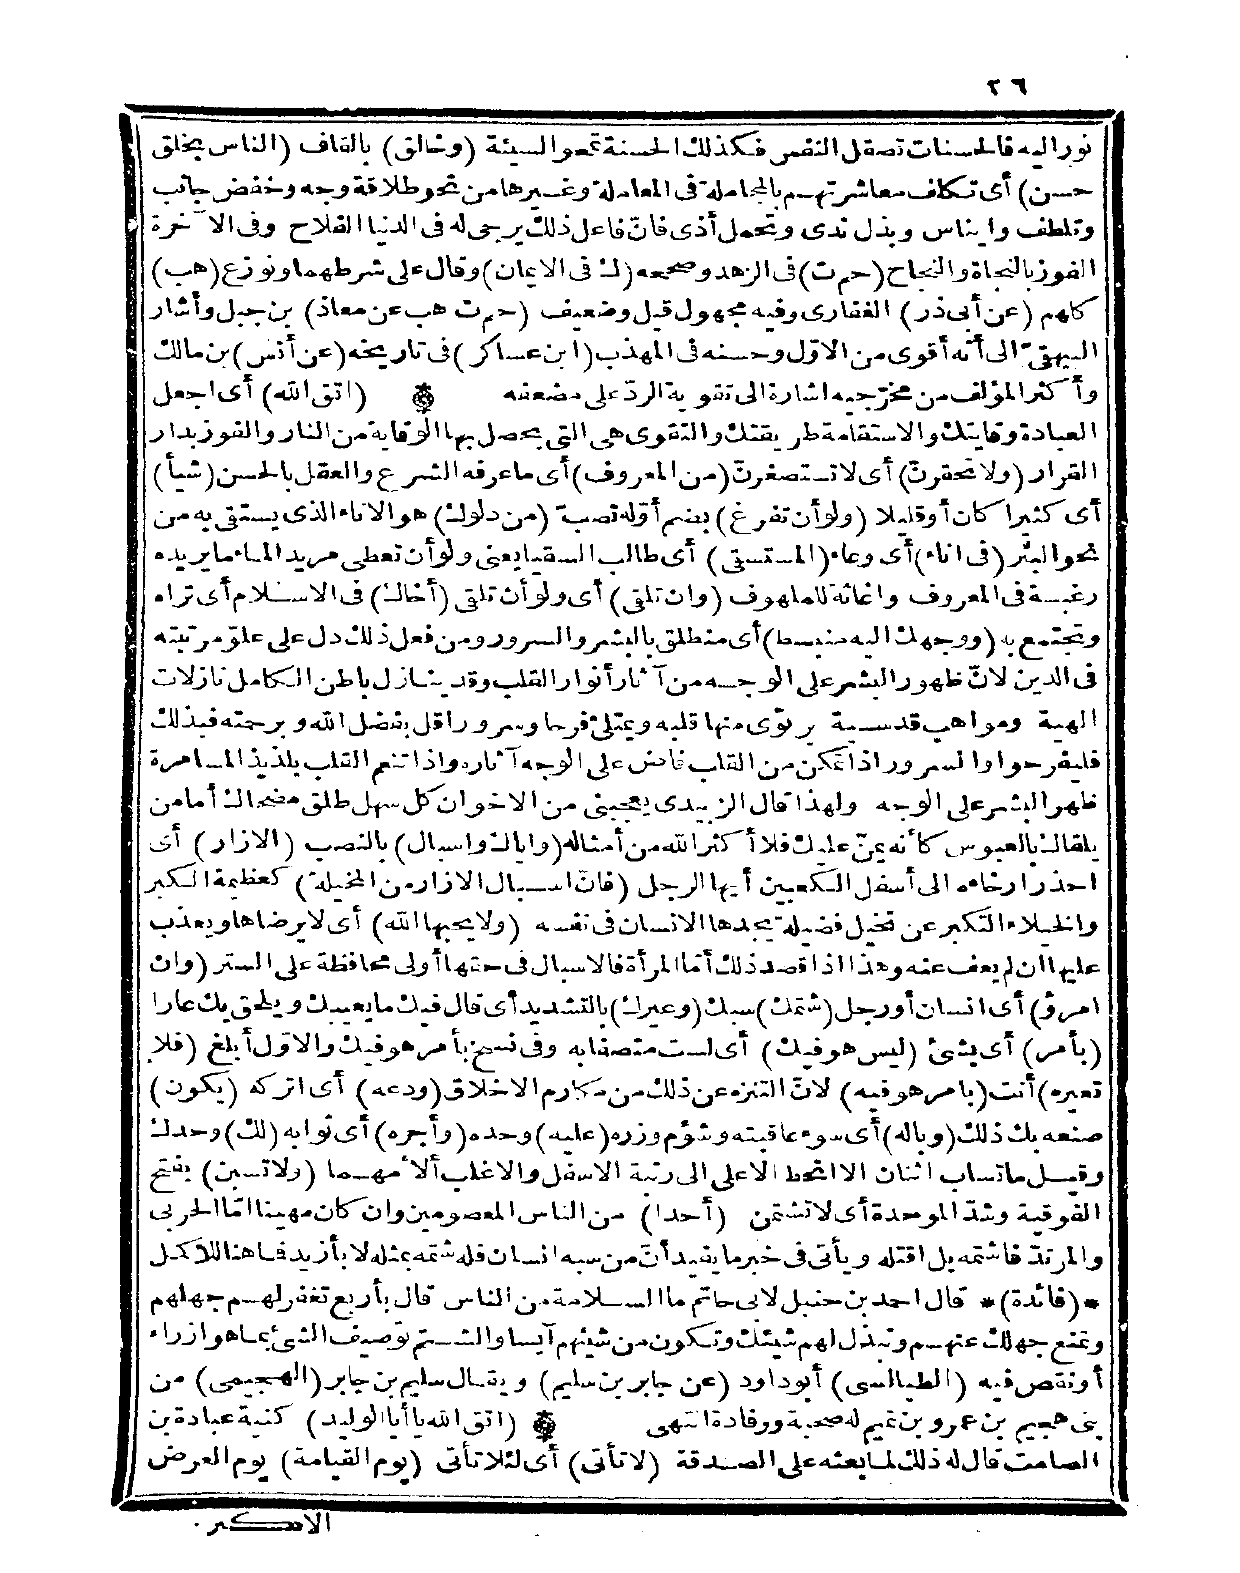 ٢٦
نور اليه فالحسنات تصقل النفس فكذلك الحسنة تمحو السيئة (وخالق) بالقاف (الناس بخلق
حسن) أى تكلف معاشرتهم بالمجاملة فى المعاملة وغيرها من نحو طلاقة وجه وخفض جانب
وتلطف وايناس وبذل ندى وتحمل أذى فان فاعل ذلك يرجى له فى الدنيا الفلاح وفى الآخرة
الفوز بالنجاة والنجاح (حم ت) فى الزهد وصححه (ك فى الايمان) وقال على شرطهما ونوزع (هب)
كلهم (عن أبى ذر) الغفارى وفيه مجهول قيل وضعيف (حم ت هب عن معاذ) بن جبل وأشار
البيهقى الى أنه أقوى من الاول وحسنه فى المهذب (ابن عساكر) فى تاريخه (عن أنس) بن مالك
وأكثر المؤلف من مخرّجيه اشارة الى تقوية الردّ على مضعفه (اتق الله) أى اجعل
العبادة وقايتك والاستقامة طريقتك والتقوى هى التى يحصل بها الوقاية من النار والفوز بدار
القرار (ولا تحقرنّ) أى لا تستصغرنّ (من المعروف) أى ما عرفه الشرع والعقل بالحسن (شيأ)
أى كثيرا كان أو قليلا (ولو أن تفرغ) بضم أوله تصبّ (من دلوك) هو الاناء الذى يستقى به من
نحو البئر (فى اناء) أى وعاء (المستسقى) أى طالب السقيا يعنى ولو أن تعطى مريد الماء ما يريده
رغبة فى المعروف واغاثة للملهوف (وان تلقى) أى ولو أن تلقى (أخاك) فى الاسلام أى تراه
وتجتمع به (ووجهك اليه منبسط) أى منطلق بالبشر والسرور ومن فعل ذلك دل على علوّ مرتبته
فى الدين لانّ ظهور البشر على الوجه من آثار أنوار القلب وقد ينازل باطن الكامل نازلات
الهية ومواهب قدسية يرتوى منها قلبه ويمتلئ فرحا وسرورا قل بفضل الله وبرحمته فبذلك
فليفرحوا والسرور اذا تمكن من القلب فاض على الوجه آثاره واذا تنعم القلب بلذيذ المسامرة
ظهر البشر على الوجه ولهذا قال الزبيدى يعجبنى من الاخوان كل سهل طلق مضحاك أما من
يلقاك بالعبوس كأنه يمنّ عليك فلا أكثر الله من أمثاله (واياك واسبال) بالنصب (الازار) أى
احذر ارخاءه الى أسفل الكعبين أيها الرجل (فانّ اسبال الازار من المخيلة) كعظيمة الكبر
والخيلاء التكبر عن تخيل فضيلة يجدها الانسان فى نفسه (ولا يحبها الله) أى لا يرضاها ويعذب
عليها ان لم يعف عنه وهذا اذا قصد ذلك أمّا المرأة فالاسبال فى حقها أولى محافظة على الستر (وان
امرؤ) أى انسان أو رجل (شتمك) سبك (وعيرك) بالتشديد أى قال فيك ما يعيبك ويلحق بك عارا
(بأمر) أى بشئ (ليس هو فيك) أى لست متصفا به وفى نسخ بأمر هو فيك والاول أبلغ (فلا
تعيره) أنت (بامر هو فيه) لانّ التنزه عن ذلك من مكارم الاخلاق (ودعه) أى اتركه (يكون)
صنعه بك ذلك (وباله) أى سوء عاقبته وشؤم وزره (عليه) وحده (وأجره) أى ثوابه (لك) وحدك
وقيل ما تساب اثنان الا انحط الاعلى الى رتبة الاسفل والاغلب ألأمهما (ولا تسبن) بفتح
الفوقية وشدّ الموحدة أى لا تشتمن (أحدا) من الناس المعصومين وان كان مهينا امّا الحربى
والمرتدّ فاشتمه بل اقتله ويأتى فى خبر ما يفيد أنّ من سبه انسان فله شتمه بمثله لا بأزيد فما هنا للاكل
*(فائدة)* قال احمد بن حنبل لابى حاتم ما السلامة من الناس قال بأربع تغفر لهم جهلهم
وتمنع جهلك عنهم وتبذل لهم شيئك وتكون من شيئهم آيسا والشتم توصيف الشئ بما هو ازراء
أو نقص فيه (الطيالسى) أبو داود (عن جابر بن سليم) ويقال سليم بن جابر (الهجيمى) من
بنى هجيم بن عمرو بن تميم له صحبة ورفادة انتهى (اتق الله يا أبا الوليد) كنية عبادة بن
الصامت قال له ذلك لما بعثه على الصدقة (لا تأتى) أى لئلا تأتى (يوم القيامة) يوم العرض
الاكبر